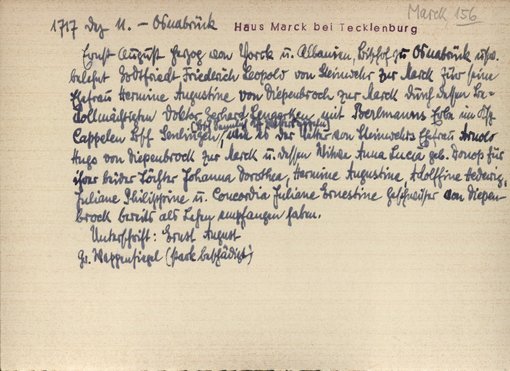 1717 Dez 11. – Osnabrück Haus Marck bei Tecklenburg Marck 156
Ernst August Herzog von Yorck u. Albanien, Bischof zu Osnabrück usw.
belehnt Godtfriedt Friederich Leopold von Steinwehr zur Marck für seine
Ehefrau Hermine Augustine von Diepenbroch zur Marck durch dessen Be-
vollmächtigten Doktor Gerhard Lengerken, mit Bertlmanns Erbe im Ksp.
Cappelen Bsch. Sentingen, wie es der Vater von Steinwehrs Ehefrau Arnold
Hugo von Diepenbrock zur Marck u. dessen Witwe Anna Lucia geb. Donop für
ihre beider Töchter Johanna Dorothea, Hermine Augustine, Adolffine Hedewig,
Juliane Philippine u. Concordia Juliane Ernestine Geschwister von Diepen-
brock bereits als Lehen empfangen haben.
Unterschrift: Ernst August
Gr. Wappensiegel (stark beschädigt)